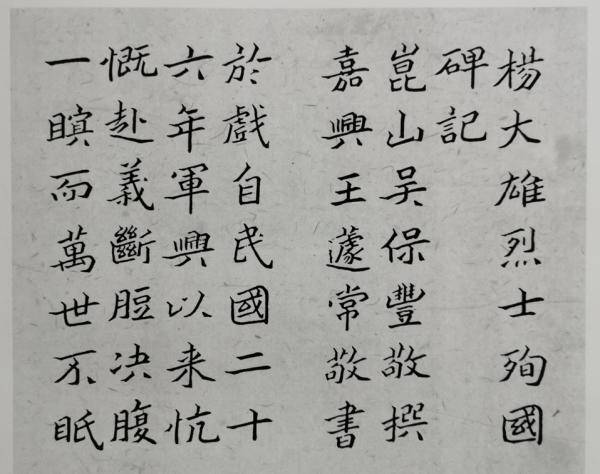 楊大雄烈士殉國
碑記
崑山吴保豐敬撰
嘉興王蘧常敬書
於戲自民國二十
六年軍興以来忼
慨赴義斷脰决腹
一瞑而萬世不眂